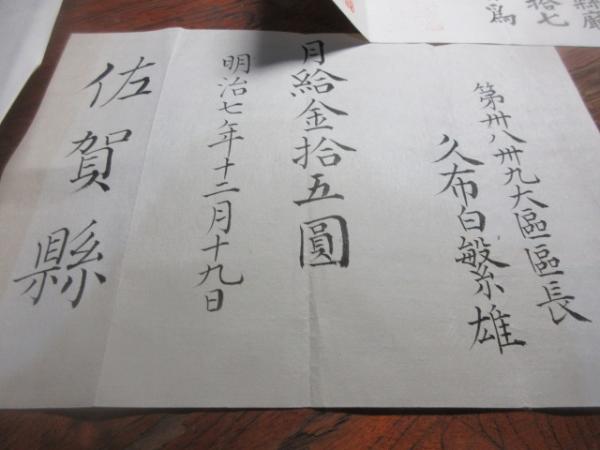 縣廳
拾七
為
第卅八卅九大區區長
久布白繁雄
月給金拾五圓
明治七年十二月十九日
佐賀縣